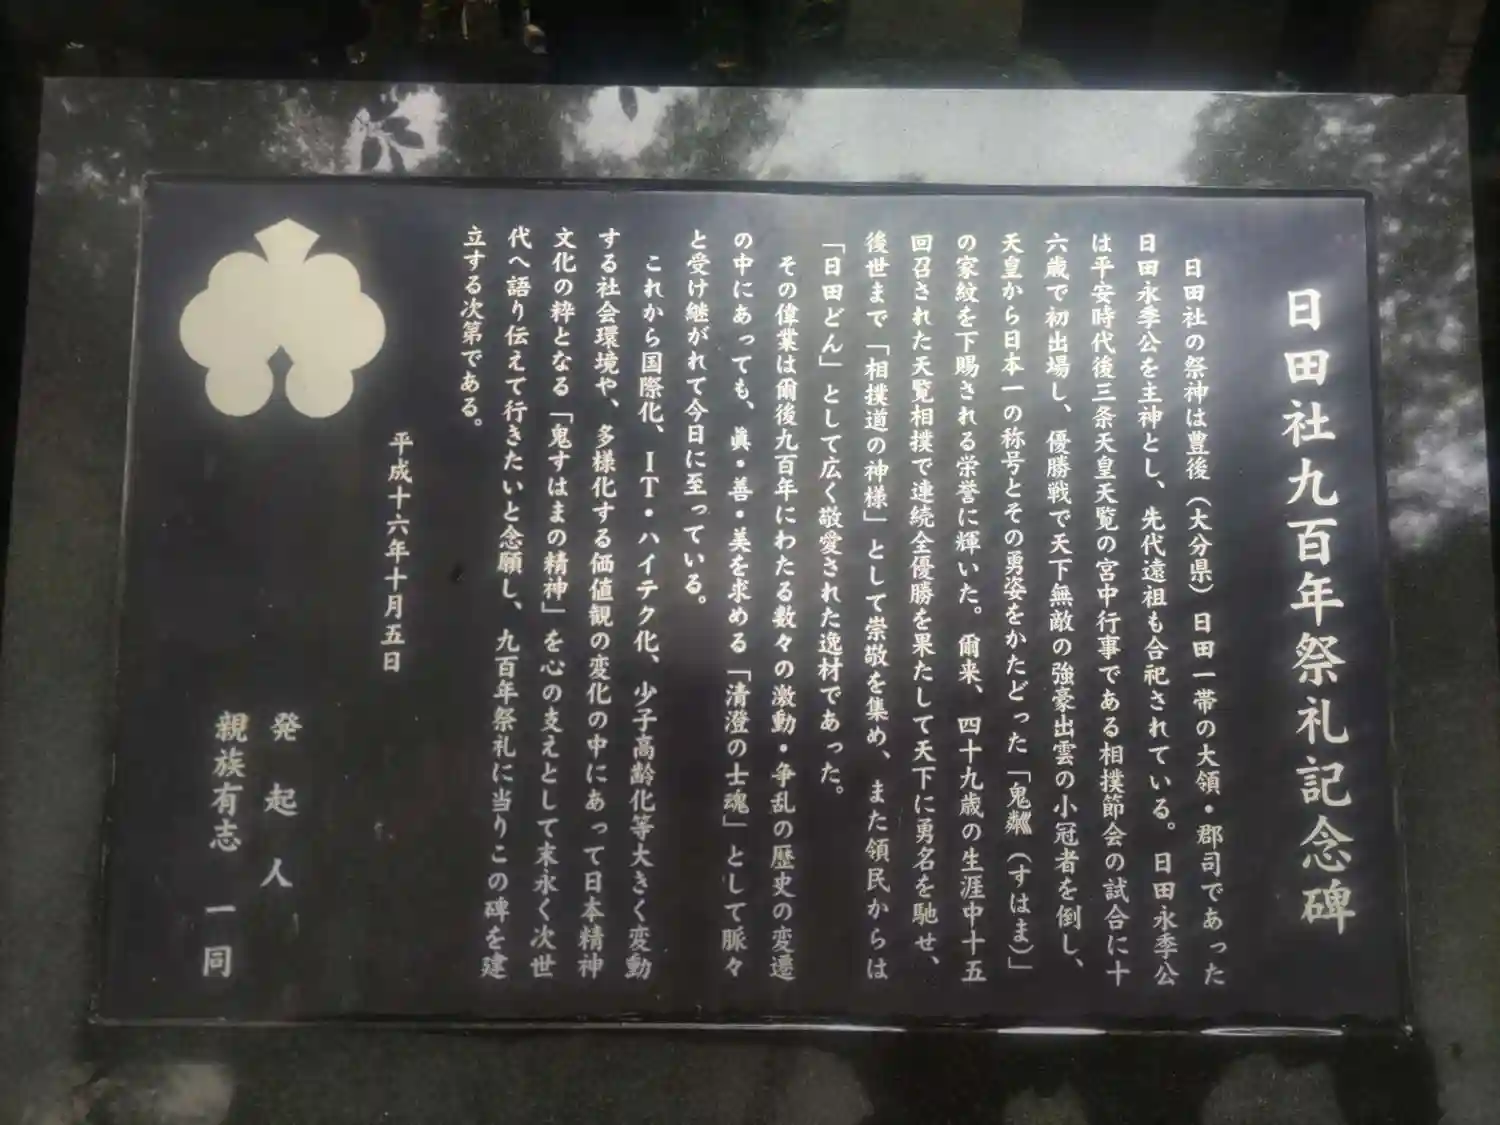 日田社九百年祭礼記念碑
日田社の祭神は豊後（大分県）日田一帯の大領・郡司であった
日田永季公を主神とし、先代遠祖も合祀されている。日田永季公
は平安時代後三条天皇天覧の宮中行事である相撲節会の試合に十
六歳で初出場し、優勝戦で天下無敵の強豪出雲の小冠者を倒し、
天皇から日本一の称号とその勇姿をかたどった「鬼粼（すはま）」
の家紋を下賜される栄誉に輝いた。爾来、四十九歳の生涯中十五
回召された天覧相撲で連続全優勝を果たして天下に勇名を馳せ、
後世まで「相撲道の神様」として崇敬を集め、また領民からは
「日田どん」として広く敬愛された逸材であった。
その偉業は爾後九百年にわたる数々の激動・争乱の歴史の変遷
の中にあっても、眞・善・美を求める「清澄の士魂」として脈々
と受け継がれて今日に至っている。
これから国際化、ＩＴ・ハイテク化、少子高齢化等大きく変動
する社会環境や、多様化する価値観の変化の中にあって日本精神
文化の粋となる「鬼すはまの精神」を心の支えとして末永く次世
代へ語り伝えて行きたいと念願し、九百年祭礼に当りこの碑を建
立する次第である。
平成十六年十月五日
発起人
親族有志一同